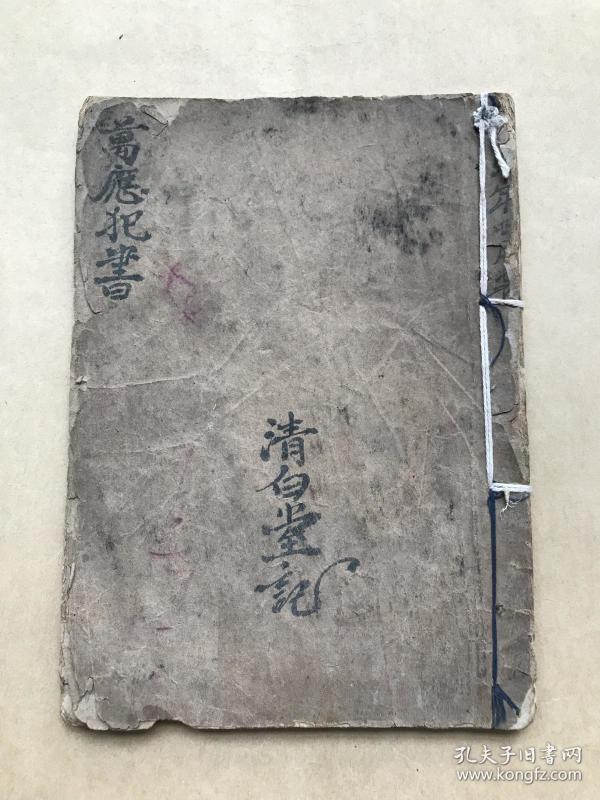 萬應犯書
清白堂記
孔夫子旧書网
www.kongfz.com